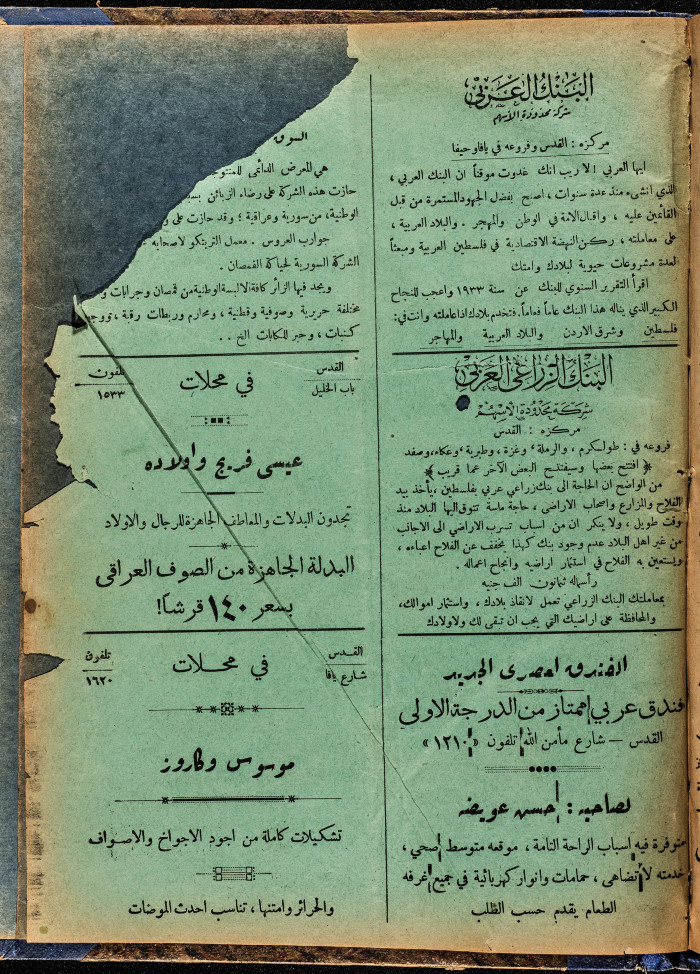 البنك العربي
شركة محدودة الاسهم
مركزه : القدس وفروعه في يافا وحيفا
ايها العربي ! لا ريب انك غدوت موقناً ان البنك العربي ،
الذي انشيء منذ عدة سنوات ، اصبح بفضل الجهود المستمرة من قبل
القائمين عليه ، واقبال الامة في الوطن والمهجر . والبلاد العربية ،
على معاملته ، ركن النهضة الاقتصادية في فلسطين العربية ومبعثاً
لعدة مشروعات حيوية لبلادك وامتك
اقرأ التقرير السنوي للبنك عن سنة ١٩٣٣ واعجب للنجاح
الكبير الذي يناله هذا البنك عاماً فعاماً. فتخدم بلادك اذا عاملته وانت في:
فلسطين وشرق الاردن والبلاد العربية والمهاجر
البنك الزراعي العربي
شركة محدودة الاسهم
مركزه : القدس
فروعه في : طولكرم ، والرملة ، وغزة ، وطبرية ، وعكاء، وصفد
﴿ افتتح بعضها وسيفتتح البعض الآخر عما قريب ﴾
من الواضح ان الحاجة الى بنك زراعي عربي بفلسطين ، يأخذ بيد
الفلاح والمزارع واصحاب الاراضي ، حاجة ماسة تتوق اليها البلاد منذ
وقت طويل ، ولا ينكر ان من اسباب تسرب الاراضي الى الاجانب
من غير اهل البلاد عدم وجود بنك كهذا يخفف عن الفلاح اعباءه ،
ويستعين به الفلاح في استثمار اراضيه وانجاح اعماله .
رأسماله ثمانون الف جنيه
بمعاملتك البنك الزراعي تعمل لانقاذ بلادك ، واستثمار اموالك،
والمحافظة على اراضيك التي يجب ان تبقى لك ولاولادك
الفندق العصري الجديد
فندق عربي ممتاز من الدرجة الاولى
القدس — شارع مأمن الله تلفون «١٢١٠»
لصاحبه : حسن عويضه
متوفرة فيه اسباب الراحة التامة ، موقعه متوسط صحي ،
خدمته لا تضاهى ، حمامات وانوار كهربائية في جميع غرفه
الطعام يقدم حسب الطلب
السوق
هي المعرض الدائمي للمنتوج
حازت هذه الشركة على رضاء الزبائن بسب
الوطنية، من سورية وعراقية ، وقد حازت على و
جوارب العروس . معمل التريكو لاصحابه
الشركة السورية لحياكة القمصان .
ويجد فيها الزائر كافة الالبسة الوطنية من قمصان وجرابات و
مختلفة حريرية وصوفية وقطنية ، ومحارم وربطات رقبة ،
كنبات ، وحبر للكتابات الخ . .
القدس
باب الخليل
في محلات
تلفون
١٥٣٣
عيسى فريج واولاده
تجدون البدلات والمعاطف الجاهزة للرجال والاولاد
البدلة الجاهزة من الصوف العراقي
بسعر ١٤٠ قرشاً!
القدس
شارع يافا
في محلات
تلفون
١٦٢٠
موسوس وكاروز
تشكيلات كاملة من اجود الاجواخ والاصواف
والحرائر وامتنها ، تناسب احدث الموضات